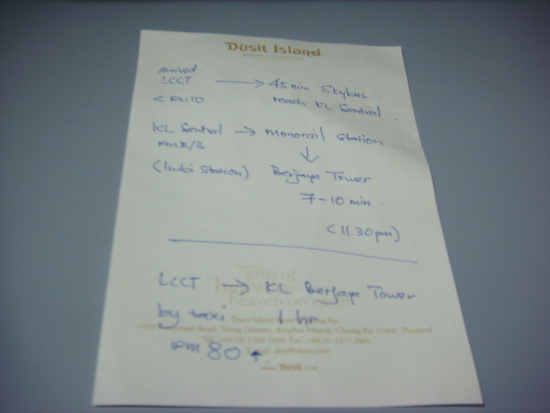 Dusit Island
Arrived
LCCT → 45 min Skybus
< RM10 reach KL Sentral
KL Sentral → Monorail Station
RM2/3 ↓
(Imbi Station) Berjaya Tower
7-10 min.
(11.30pm)
LCCT → KL Berjaya Tower
by taxi 1 hr
RM 80
gifts of
heaven on
Chiang Rai 57000, Thailand
www.Dusit.com